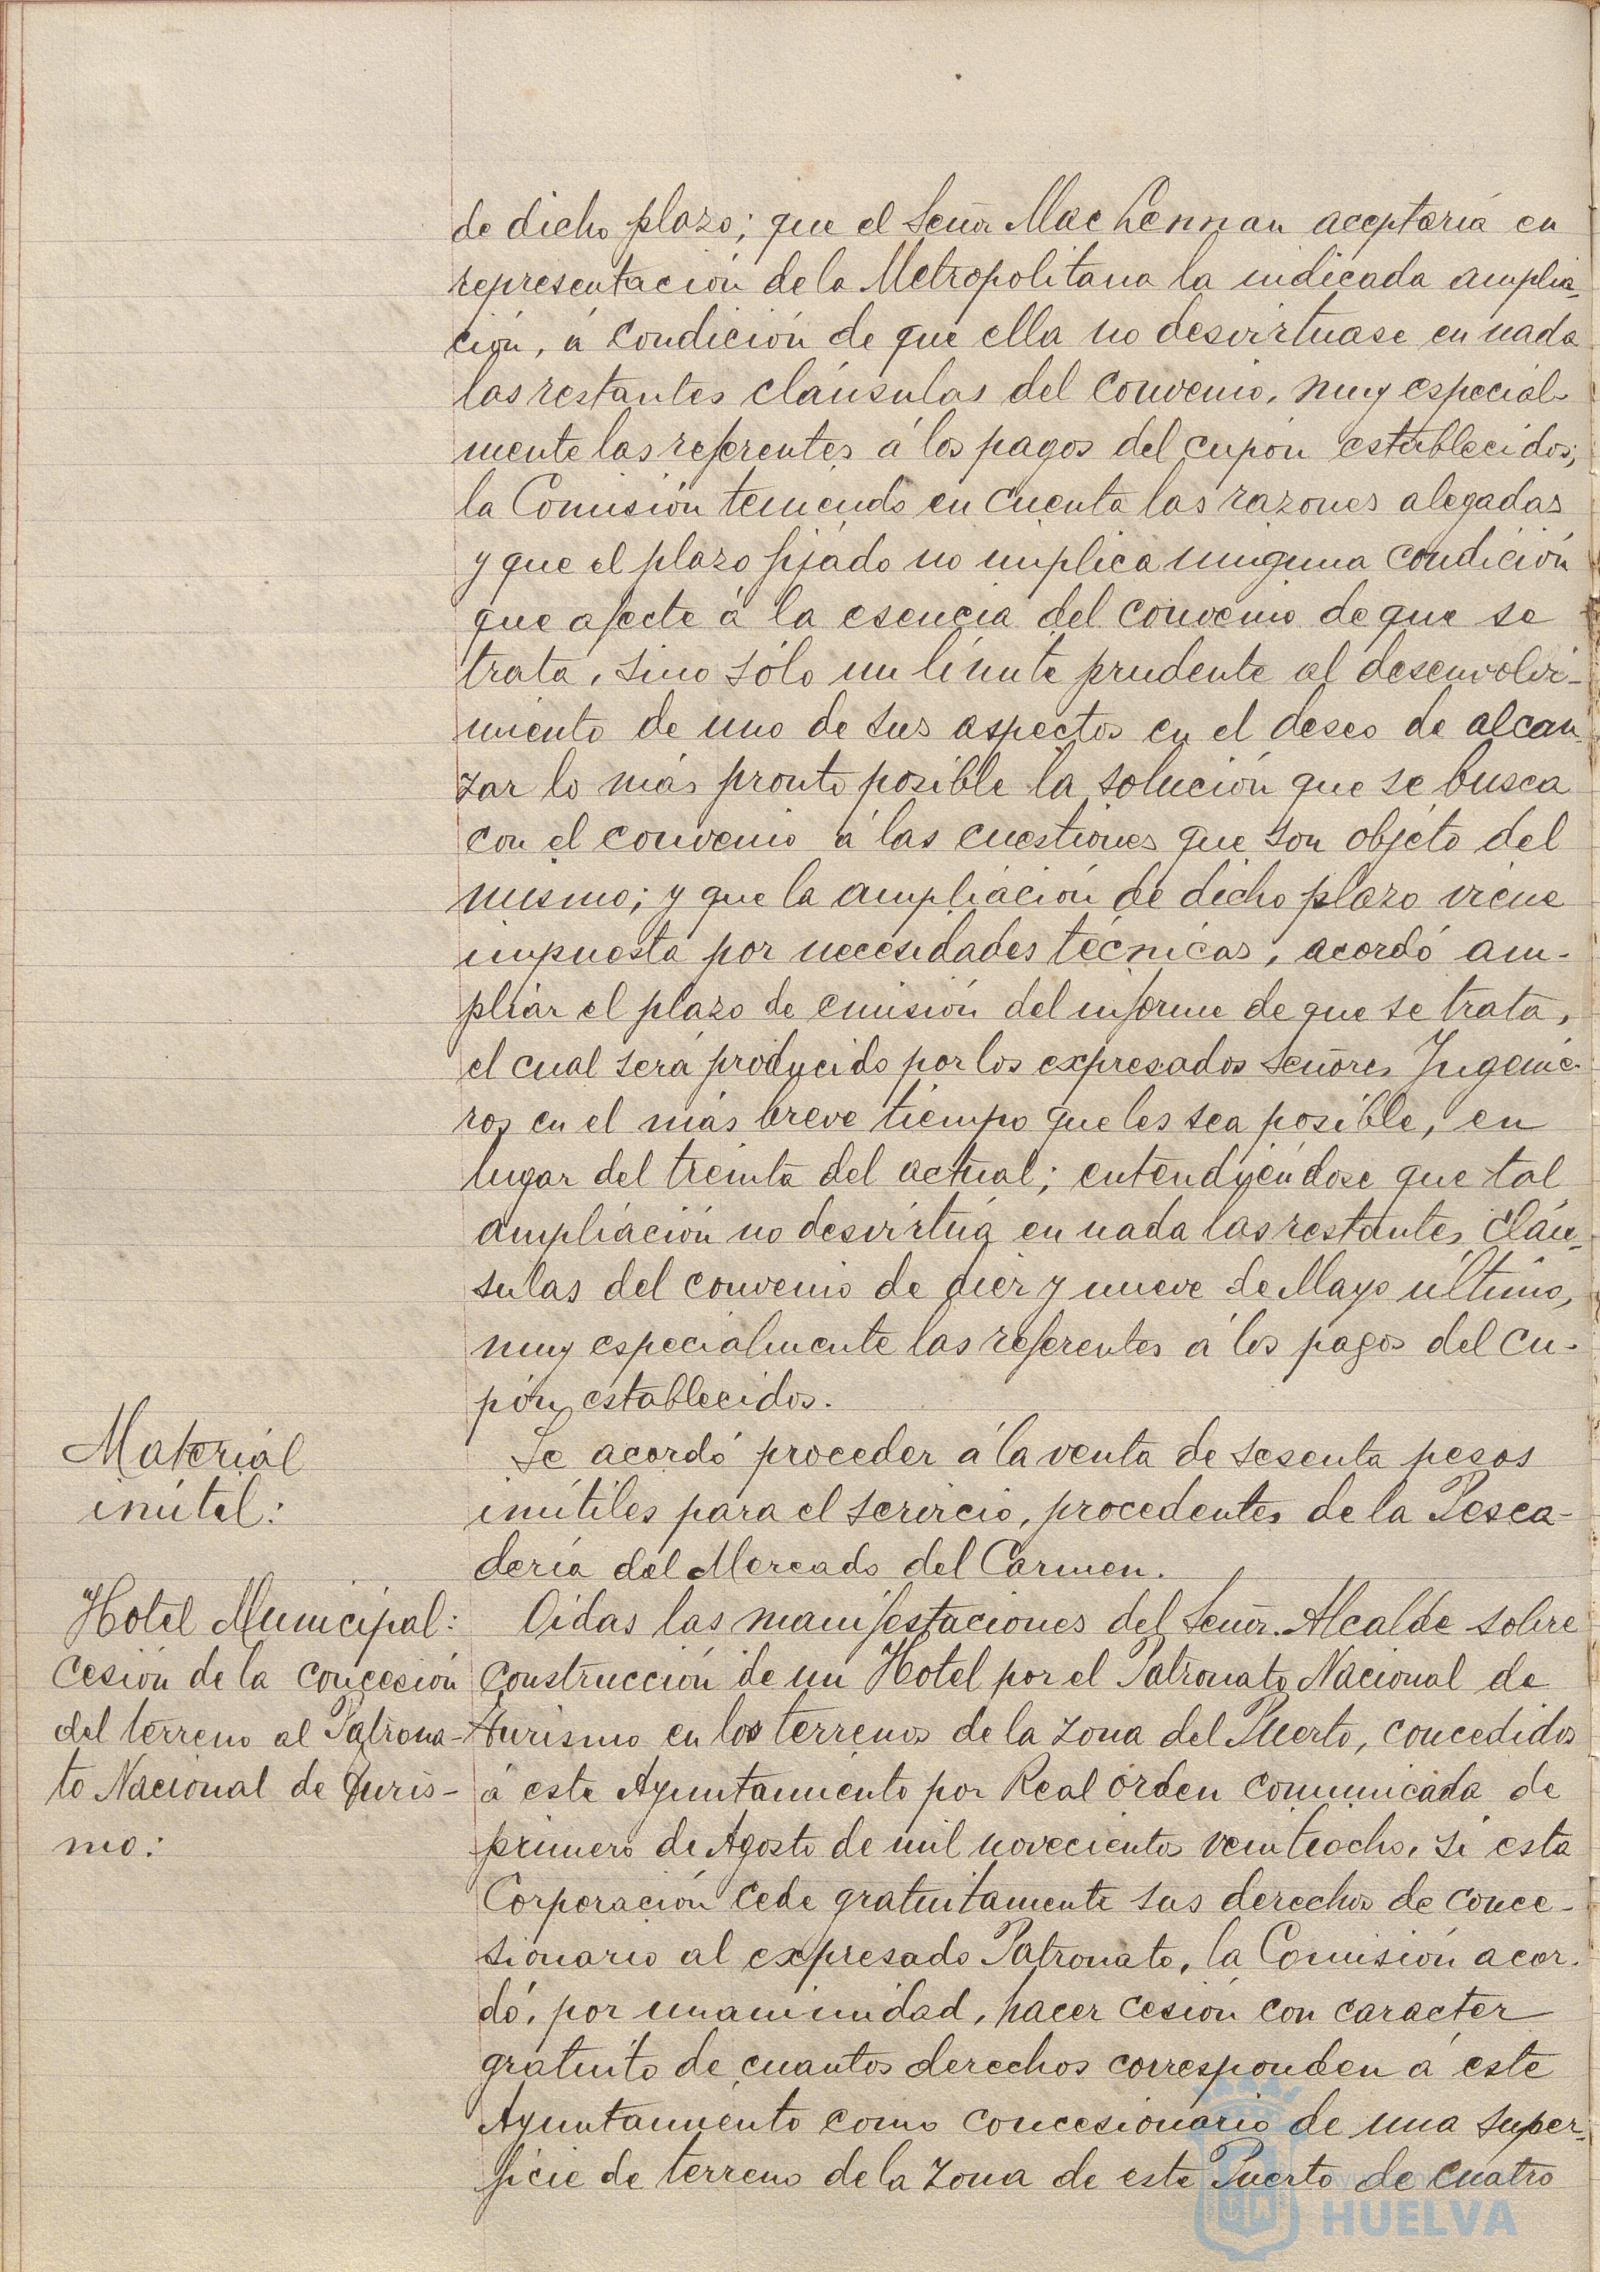 de dicho plazo; que el Señor Mac Lennan aceptaría en
representación de la Metropolitana la indicada amplia-
ción, á condición de que ella no desvirtuase en nada
las restantes cláusulas del convenio, muy especial-
mente las referentes á los pagos del cupón establecidos;
la Comisión teniendo en cuenta las razones alegadas
y que el plazo fijado no implica ninguna condición
que afecte á la esencia del convenio de que se
trata, sino sólo un límite prudente al desenvolvi-
miento de uno de sus aspectos en el deseo de alcan-
zar lo más pronto posible la solución que se busca
con el convenio á las cuestiones que son objeto del
mismo; y que la ampliación de dicho plazo viene
impuesta por necesidades técnicas, acordó am-
pliar el plazo de emisión del informe de que se trata,
el cual será producido por los expresados Señores Ingenie-
ros en el más breve tiempo que les sea posible, en
lugar del treinta del actual; entendiéndose que tal
ampliación no desvirtúa en nada las restantes cláu-
sulas del convenio de diez y nueve de Mayo último,
muy especialmente las referentes á los pagos del cu-
pón establecidos.
Material
inútil:
Se acordó proceder á la venta de sesenta pesos
inútiles para el servicio, procedentes de la Pesca-
dería del Mercado del Carmen.
Hotel Municipal:
Cesión de la concesión
del terreno al Patrona-
to Nacional de Turis-
mo:
Oidas las manifestaciones del Señor Alcalde sobre
construcción de un Hotel por el Patronato Nacional de
Turismo en los terrenos de la zona del Puerto, concedidos
á este Ayuntamiento por Real orden comunicada de
primero de Agosto de mil novecientos veintiocho, si esta
Corporación cede gratuitamente sus derechos de conce-
sionario al expresado Patronato, la Comisión acor-
dó, por unanimidad, hacer cesión con caracter
gratuito de cuantos derechos corresponden á este
Ayuntamiento como concesionario de una super-
ficie de terreno de la zona de este Puerto de cuatro
HUELVA